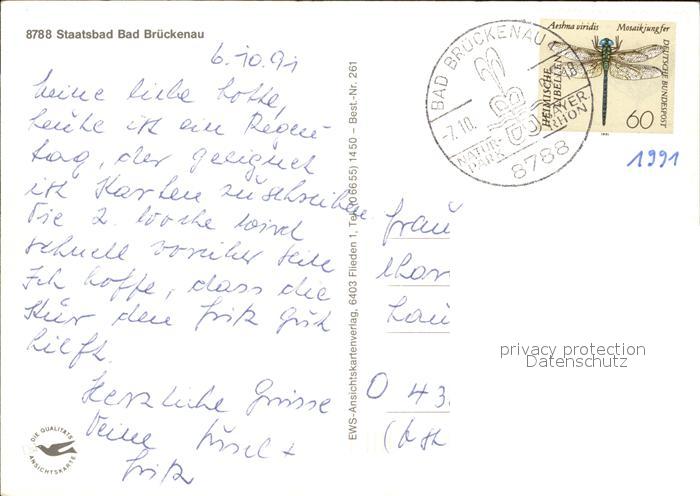 8788 Staatsbad Bad Brückenau
6.10.91
Meine liebe Lotte,
heute ist ein Regen-
tag, der geeignet
ist Karten zu schreiben
Die 2. Woche wird
schnell vorüber sein
Ich hoffe, dass die
Kur dem Fritz gut
hilft.
Herzliche Grüsse
Deine Ursel +
Fritz
DIE QUALITÄTS
ANSICHTSKARTE
EWS-Ansichtskartenverlag, 6403 Flieden 1, Tel. (06655) 1450 – Best.-Nr. 261
BAD BRÜCKENAU
-7.10.
NATUR-
PARK
8788
Aeshna viridis Mosaikjungfer
HEIMISCHE
LIBELLEN
DEUTSCHE BUNDESPOST
60
1991
1991
Frau
O 43
privacy protection
Datenschutz